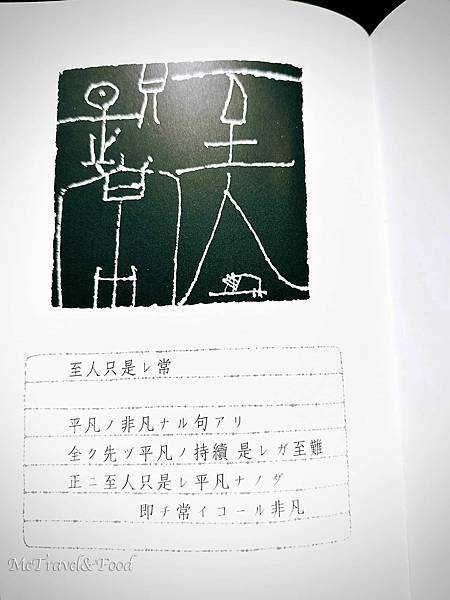 至人只是レ常
平凡ノ非凡ナル句アリ
全ク先ヅ平凡ノ持續 是レガ至難
正ニ至人只是レ平凡ナノダ
即チ常イコール非凡
McTravel&Food